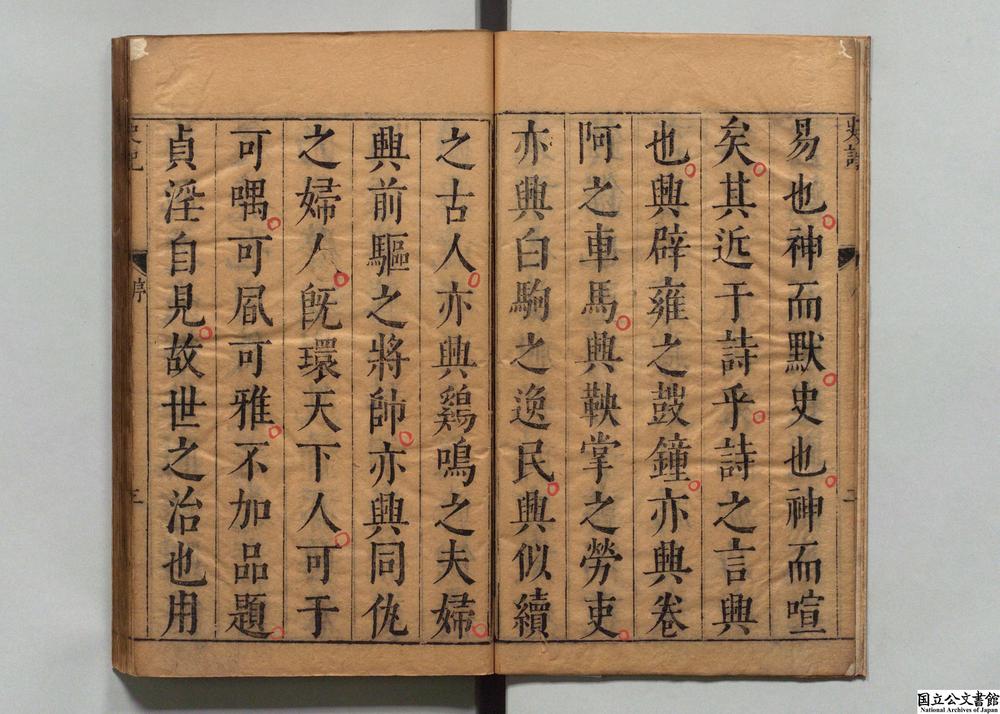 易也神而默史也神而喧
矣其近于詩乎詩之言興
也興辟雍之鼓鐘亦興卷
阿之車馬興鞅掌之勞吏
亦興白駒之逸民興似續
之古人亦興鷄鳴之夫婦
興前驅之將帥亦興同仇
之婦人旣環天下人可于
可喁可風可雅不加品題
貞淫自見故世之治也用
序
三
国立公文書館
National Archives of Japan